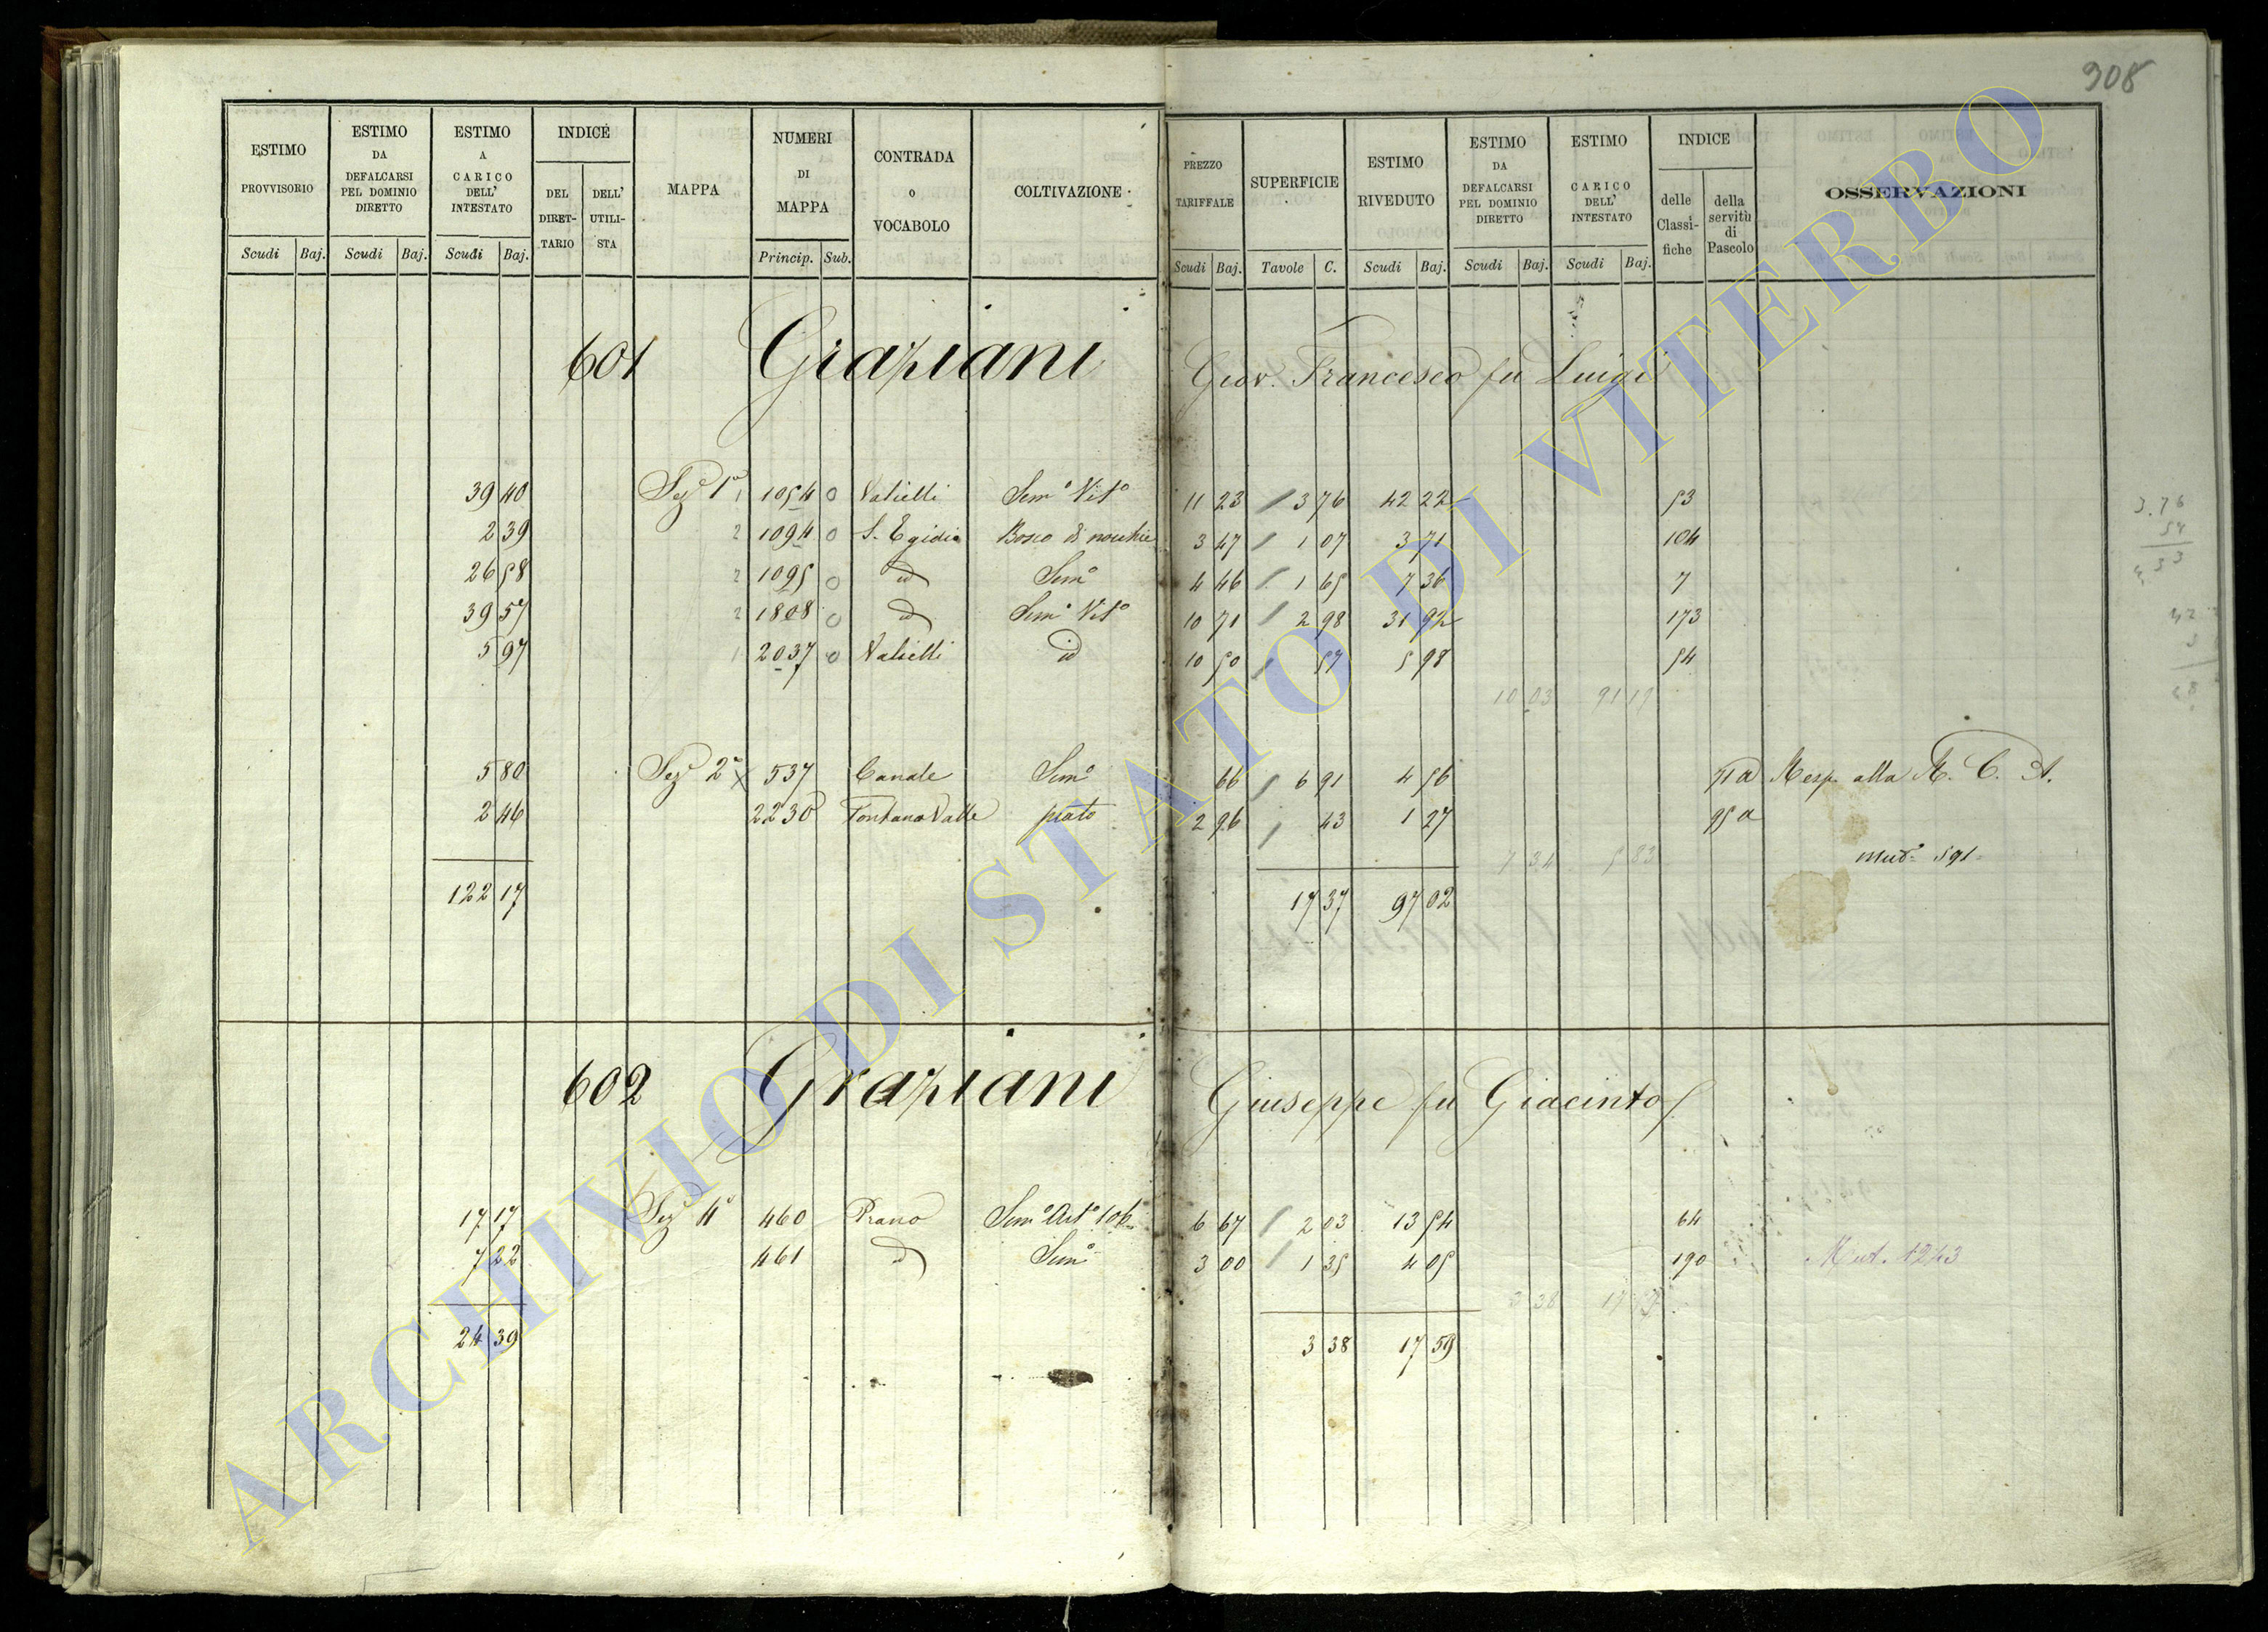 908
ESTIMO PROVVISORIO Scudi Baj.
ESTIMO DA DEFALCARSI PEL DOMINIO DIRETTO Scudi Baj.
ESTIMO A CARICO DELL' INTESTATO Scudi Baj.
INDICE DEL DIRET-TARIO DELL' UTILI-STA
MAPPA
NUMERI DI MAPPA Princip. Sub.
CONTRADA o VOCABOLO
COLTIVAZIONE
PREZZO TARIFFALE Scudi Baj.
SUPERFICIE Tavole C.
ESTIMO RIVEDUTO Scudi Baj.
ESTIMO DA DEFALCARSI PEL DOMINIO DIRETTO Scudi Baj.
ESTIMO CARICO DELL' INTESTATO Scudi Baj.
INDICE delle Classi-fiche della servitù di Pascolo
OSSERVAZIONI
601 Graziani Giov. Francesco fu Luigi
39 40 Sez.e 1a 1 1054 0 Valielli Sem.o Vit.o 11 23 3 76 42 22 53
2 39 2 1094 0 S. Egidio Bosco di nocchie 3 47 1 07 3 71 104
26 58 2 1095 0 id Sem.o 4 46 1 65 7 36 7
39 57 2 1808 0 id Sem.o Vit.o 10 71 2 98 31 92 173
5 97 1 2037 0 Valielli id 10 50 57 5 98 54
10 03 91 19
5 80 Sez.e 2a 537 Canale Sem.o 66 6 91 4 56 71a Resp. alla R. C. A.
2 46 2230 Fontana Valle prato 2 96 43 1 27 95a
7 34 5 83 mut.e 591
122 17 17 37 97 02
3.76
54
602 Graziani Giuseppe fu Giacinto
17 17 Sez.e 4a 460 Piano Sem.o Art.o 6 67 2 03 13 54 64
7 22 461 id Sem.o 3 00 1 35 4 05 190 Mut. 1243
3 38 17 59
24 39 3 38 17 59
ARCHIVIO DI STATO DI VITERBO